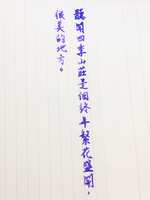 四季山莊是個終年繁花盛開，
很美的地方。